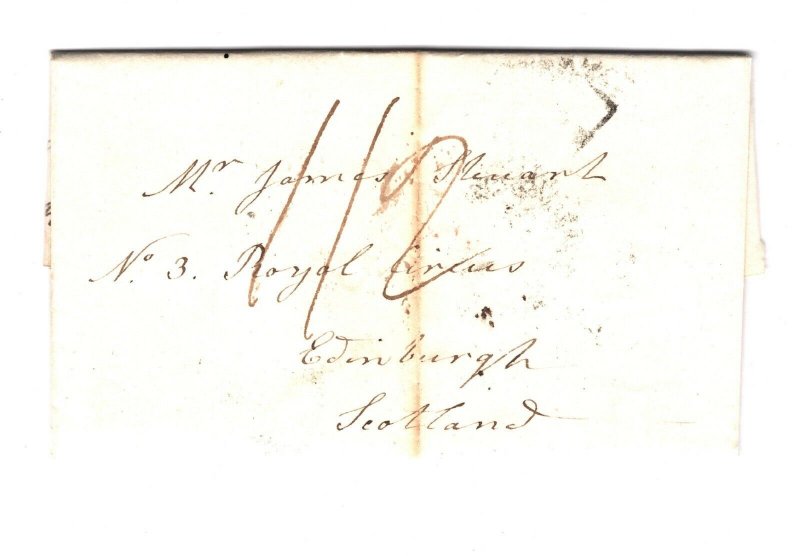 Mr James Stuart
No 3. Royal Circus
Edinburgh
Scotland